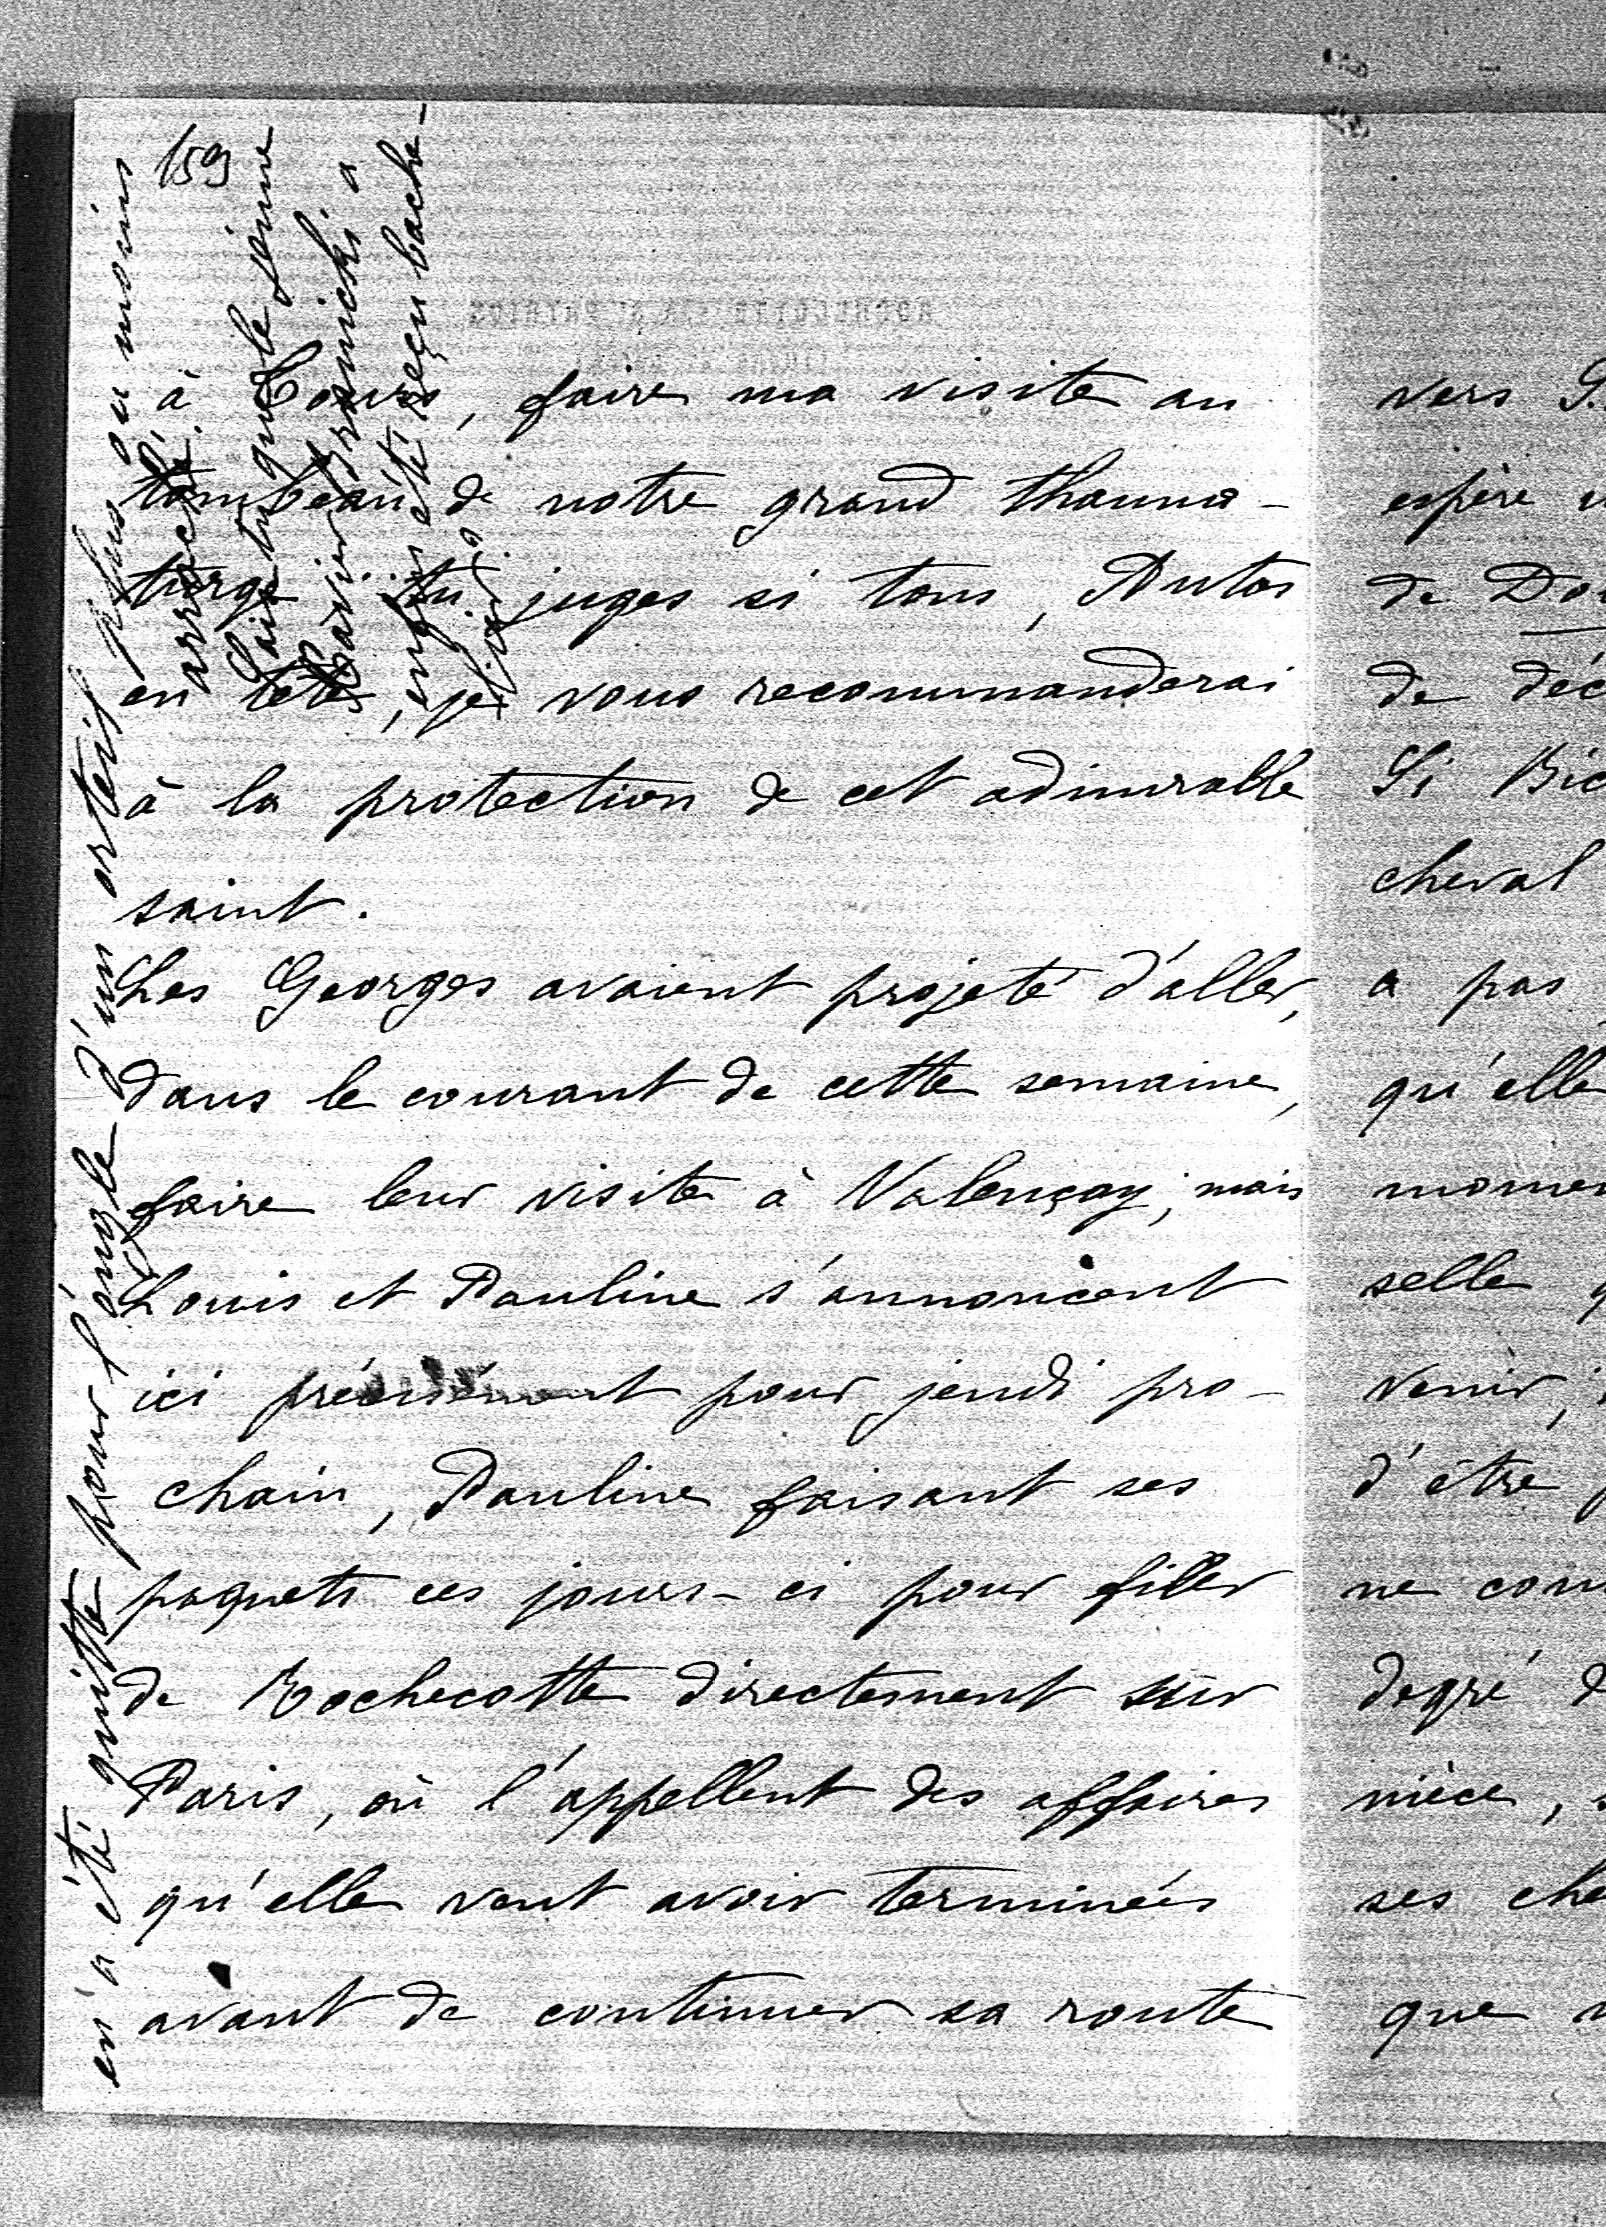 159
à Tours, faire ma visite au
tombeau de notre grand thauma-
turge. Tu juges si tous, Autos
en tête, je vous recommanderai
à la protection de cet admirable
saint.
Les Georges avaient projeté d'aller,
dans le courant de cette semaine,
faire leur visite à Valençay; mais
Louis et Pauline s'annoncent
ici précisément pour jeudi pro-
chain, Pauline faisant ses
paquets ces jours-ci pour filer
de Rochecotte directement sur
Paris, où l'appellent des affaires
qu'elle veut avoir terminées
avant de continuer sa route
en a été quitte pour l'ongle d'un orteil plus ou moins
arraché.
Sais-tu que le jeune
Xavier Branicki a
enfin été reçu bache-
lier?
vers
espère
de
de
Si
cheval
a pas
qu'elle
selle
venir,
d'être
ne
degré
nièce,
ses
que